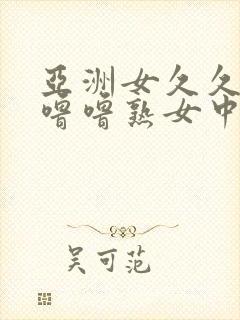 亞洲女久久
噜噜熟女中
吴可范